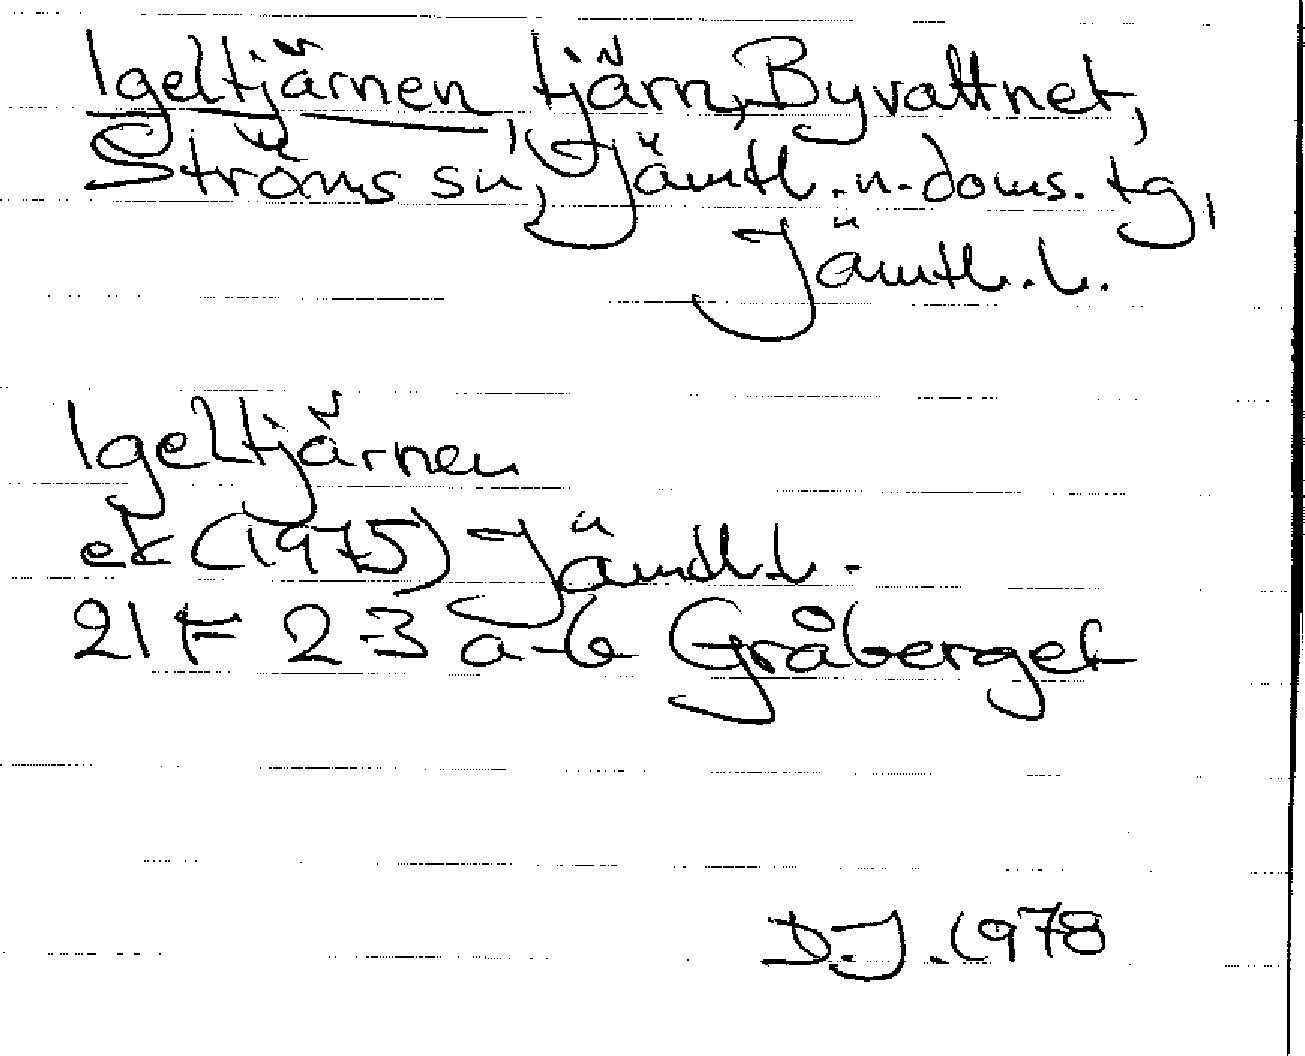 Igeltjärnen, tjärn, Byvattnet,
Ströms sn, Jämtl. n. doms. tg,
Jämtl. l.
Igeltjärnen
ek (1975) Jämtl. l.
21 F 2-3 a-b Gråberget
D.J. 1978